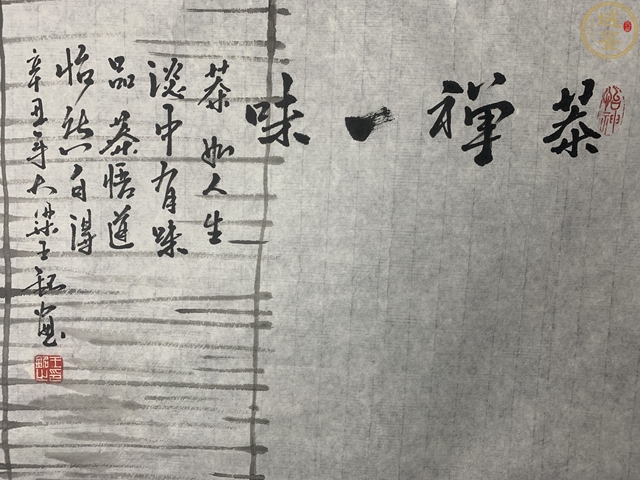 茶禅一味
茶如人生
淡中有味
品茶悟道
怡然自得
辛丑年大梁王